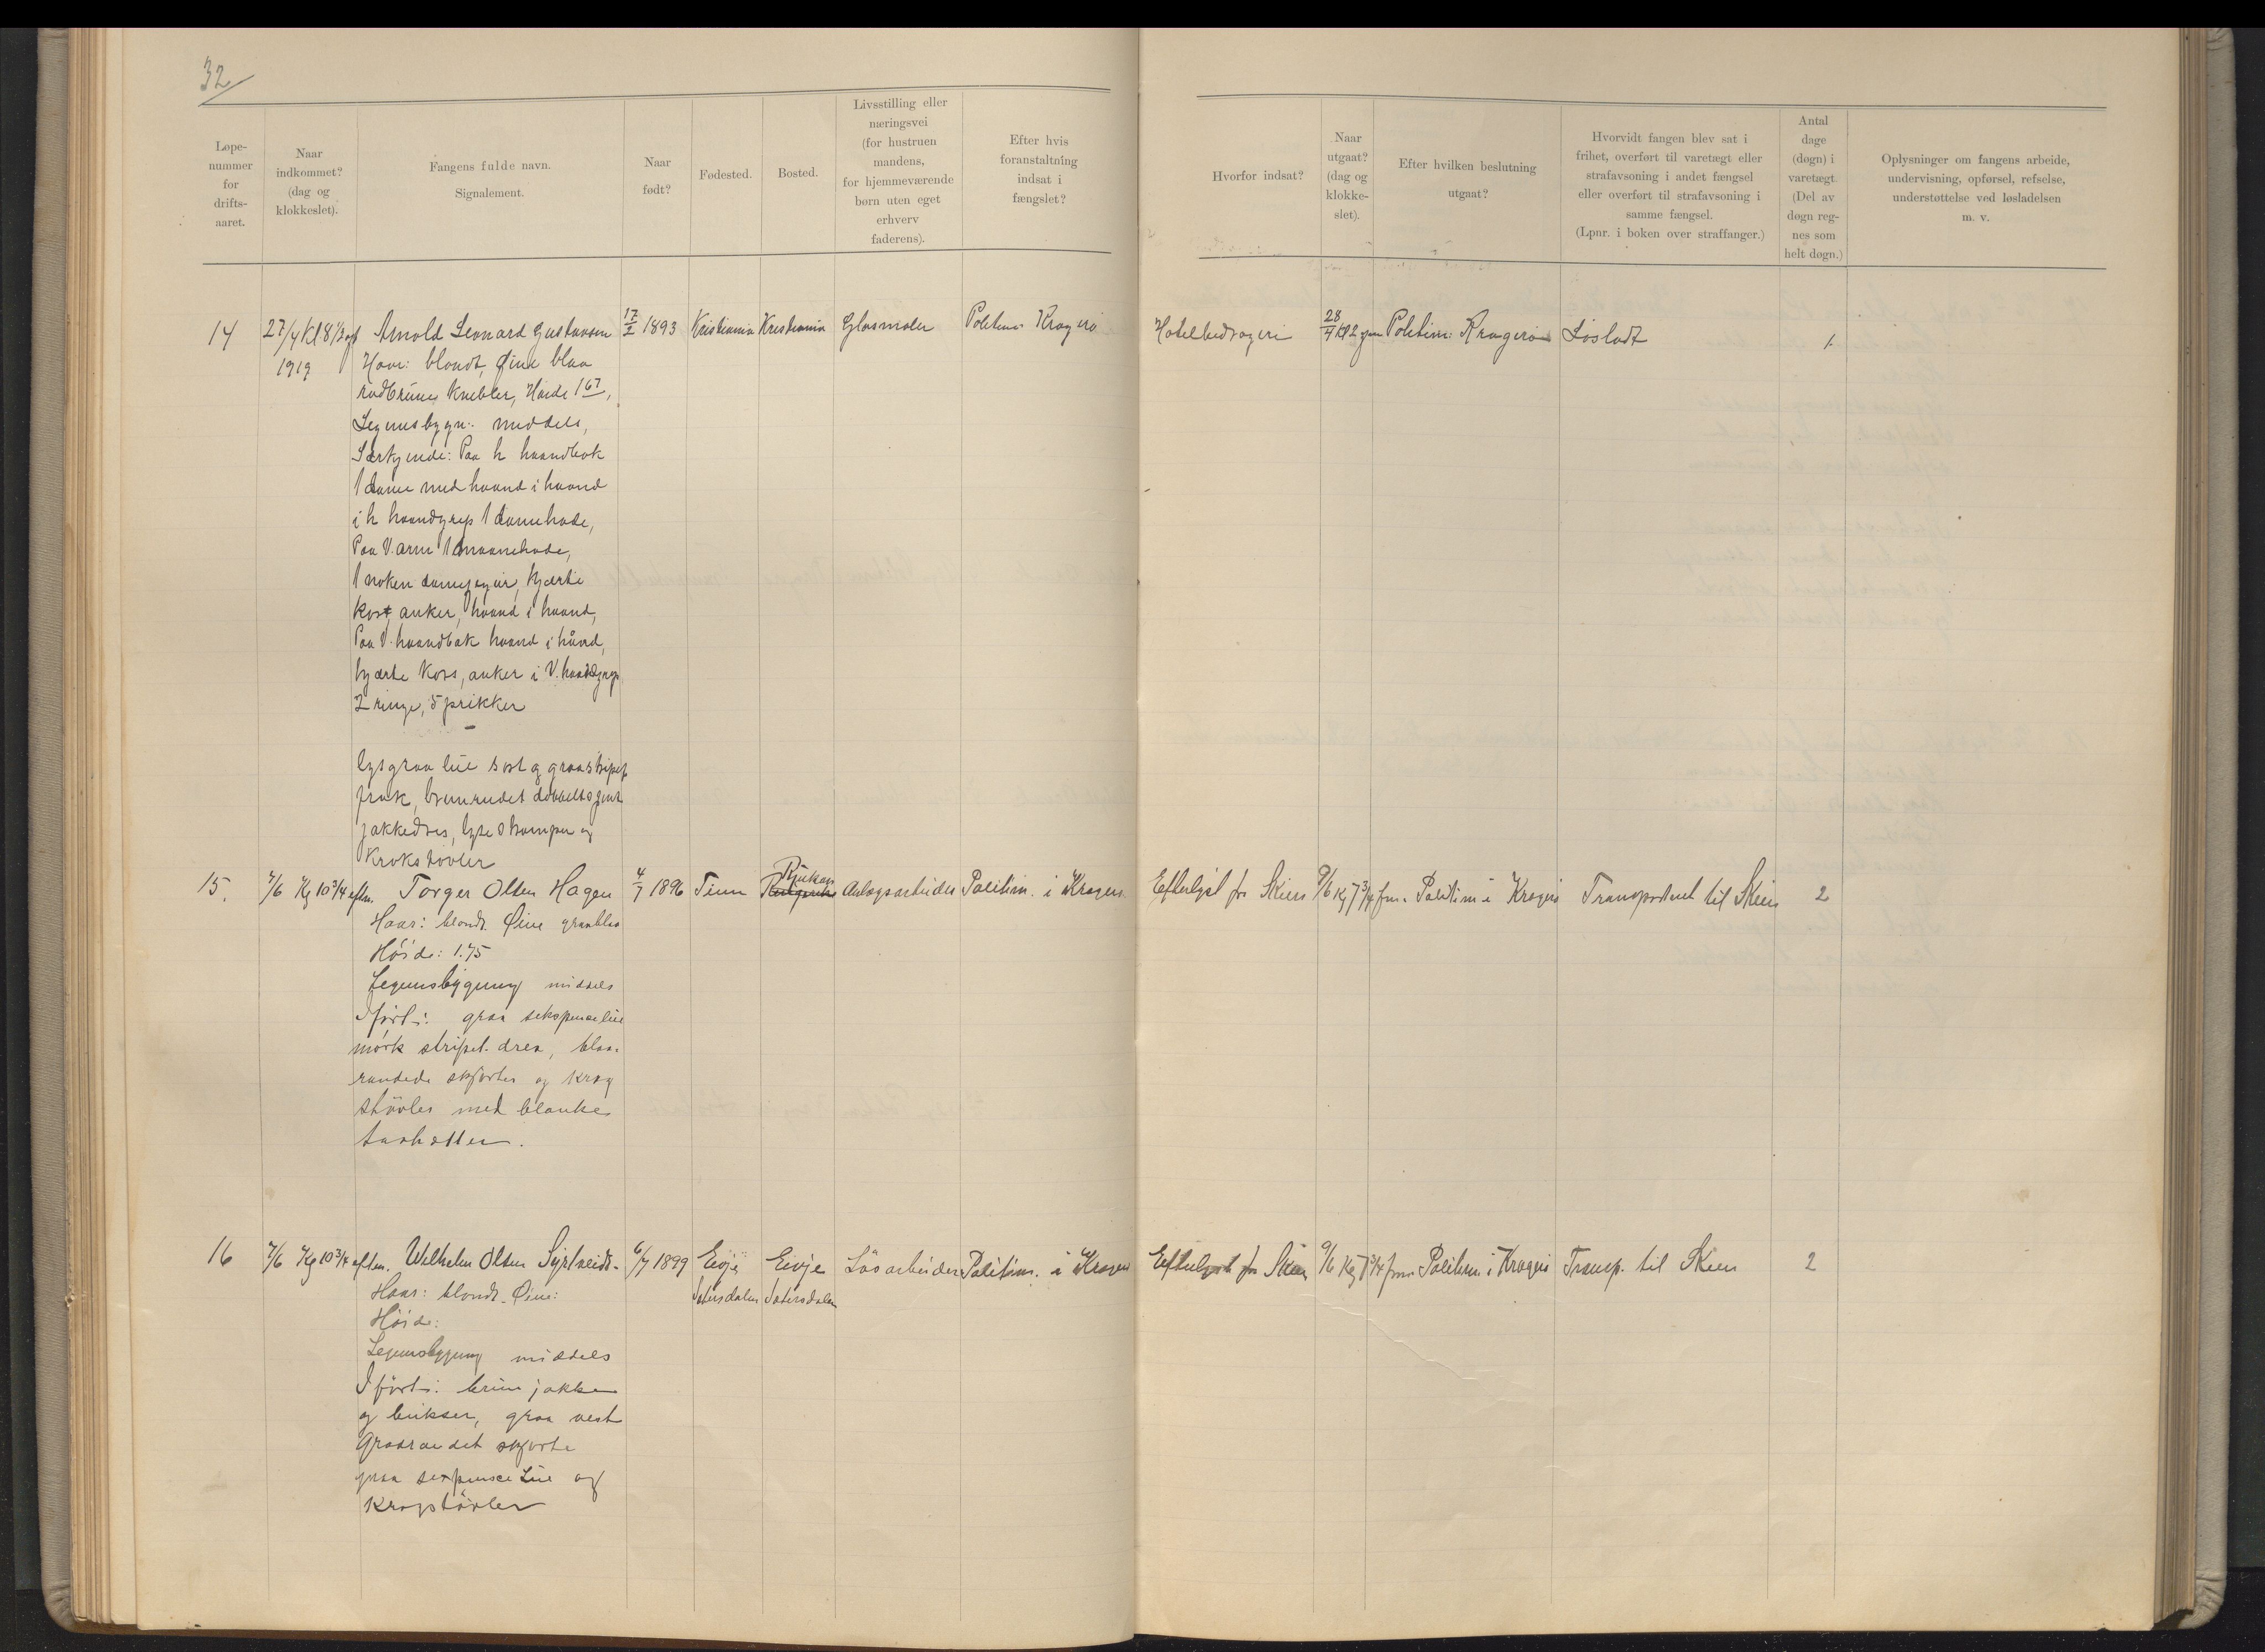 32
Løpe-
nummer
for
drifts-
aaret.
Naar
indkommet?
(dag og
klokkeslet).
Fangens fulde navn.
Signalement.
Naar
født?
Fødested.
Bosted.
Livsstilling eller
næringsvei
(for hustruen
mandens,
for hjemmeværende
børn uten eget
erhverv
faderens).
Efter hvis
foranstaltning
indsat i
fængslet?
Hvorfor indsat?
Naar
utgaat?
(dag og
klokke-
slet).
Efter hvilken beslutning
utgaat?
Hvorvidt fangen blev sat i
frihet, overført til varetægt eller
strafavsoning i andet fængsel
eller overført til strafavsoning i
samme fængsel.
(Lpnr. i boken over straffanger.)
Antal
dage
(døgn) i
varetægt.
(Del av
døgn reg-
nes som
helt døgn.)
Oplysninger om fangens arbeide,
undervisning, opførsel, refselse,
understøttelse ved løsladelsen
m. v.
14 27/4 Kl 8 1/2 Arnold Leonard Gustavsen 17/2 1893 Kristiania Kristiania Glasmaler Politim. Kragerø Hotelbedrageri 28/4 Kl 2 Politim: Kragerø Løsladt 1
1919 Haar: blondt, Øine blaa
Høide 167,
Legemsbygn: middels,
Særkjende: Paa h haandbak
1 dame med haand i haand
i h haandgrep 1 damehode,
Paa V. arm 1 damehode,
1 naken damefigur, hjærte
kors anker, haand i haand,
Paa V. haandbak haand i hånd,
hjærte kors, anker i V. haandgrep
2 ringe, 5 prikker
lysgraa lue sort og graastripet
frak, brunrudet
jakkedres, lyse strømper og
krokstøvler
15. 7/6 Kl 10 3/4 eftm. Torger Olsen Hagen 4/7 1896 Tinn Rjukan Anlægsarbeider Politim. i Kragerø Efterlyst fra Skien 9/6 Kl 7 3/4 fm. Politim i Kragerø Transporteret til Skien 2
Haar: blondt. Øine graablaa
Høide: 1.75
Legemsbygning middels
Iført: graa sekspencelue
mørk stripet dres, blaa-
randede skjorter og krag
støvler med blanke
taahætter.
16 7/6 Kl 10 3/4 eftm. Wilhelm Olsen 6/7 1899 Evje Evje Løsarbeider Politim. i Kragerø Efterlyst fra Skien 9/6 Kl 7 3/4 fm. Politim i Kragerø Transp. til Skien 2
Haar: blondt. Øine: Sætersdalen Sætersdalen
Høide:
Legemsbygning middels
Iført: brun jakke
og bukser, graa vest
graarandet skjorte
graa sexpence lue og
Kragstøvler